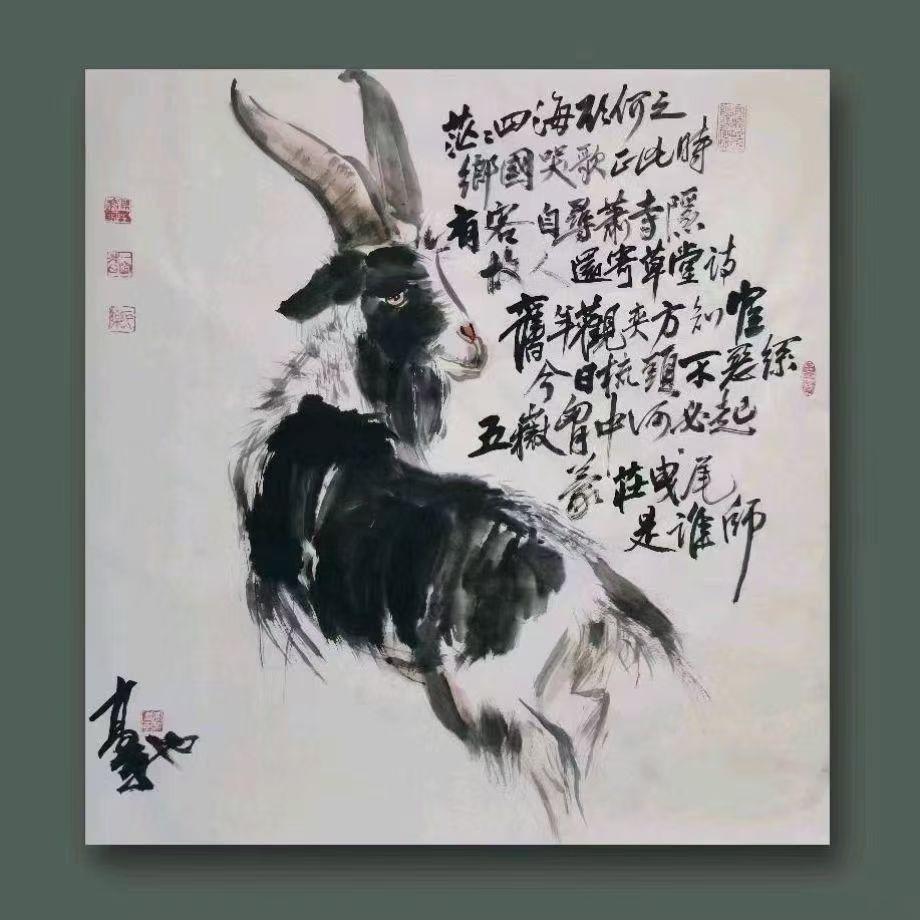 茫々四海欲何之
鄉國哭歌正此時
有客自尋蕭寺隱
故人還寄草堂詩
舊年觀奕方知
今日梳頭不
五嶽胸中何必起
蒙莊曳尾
是誰師